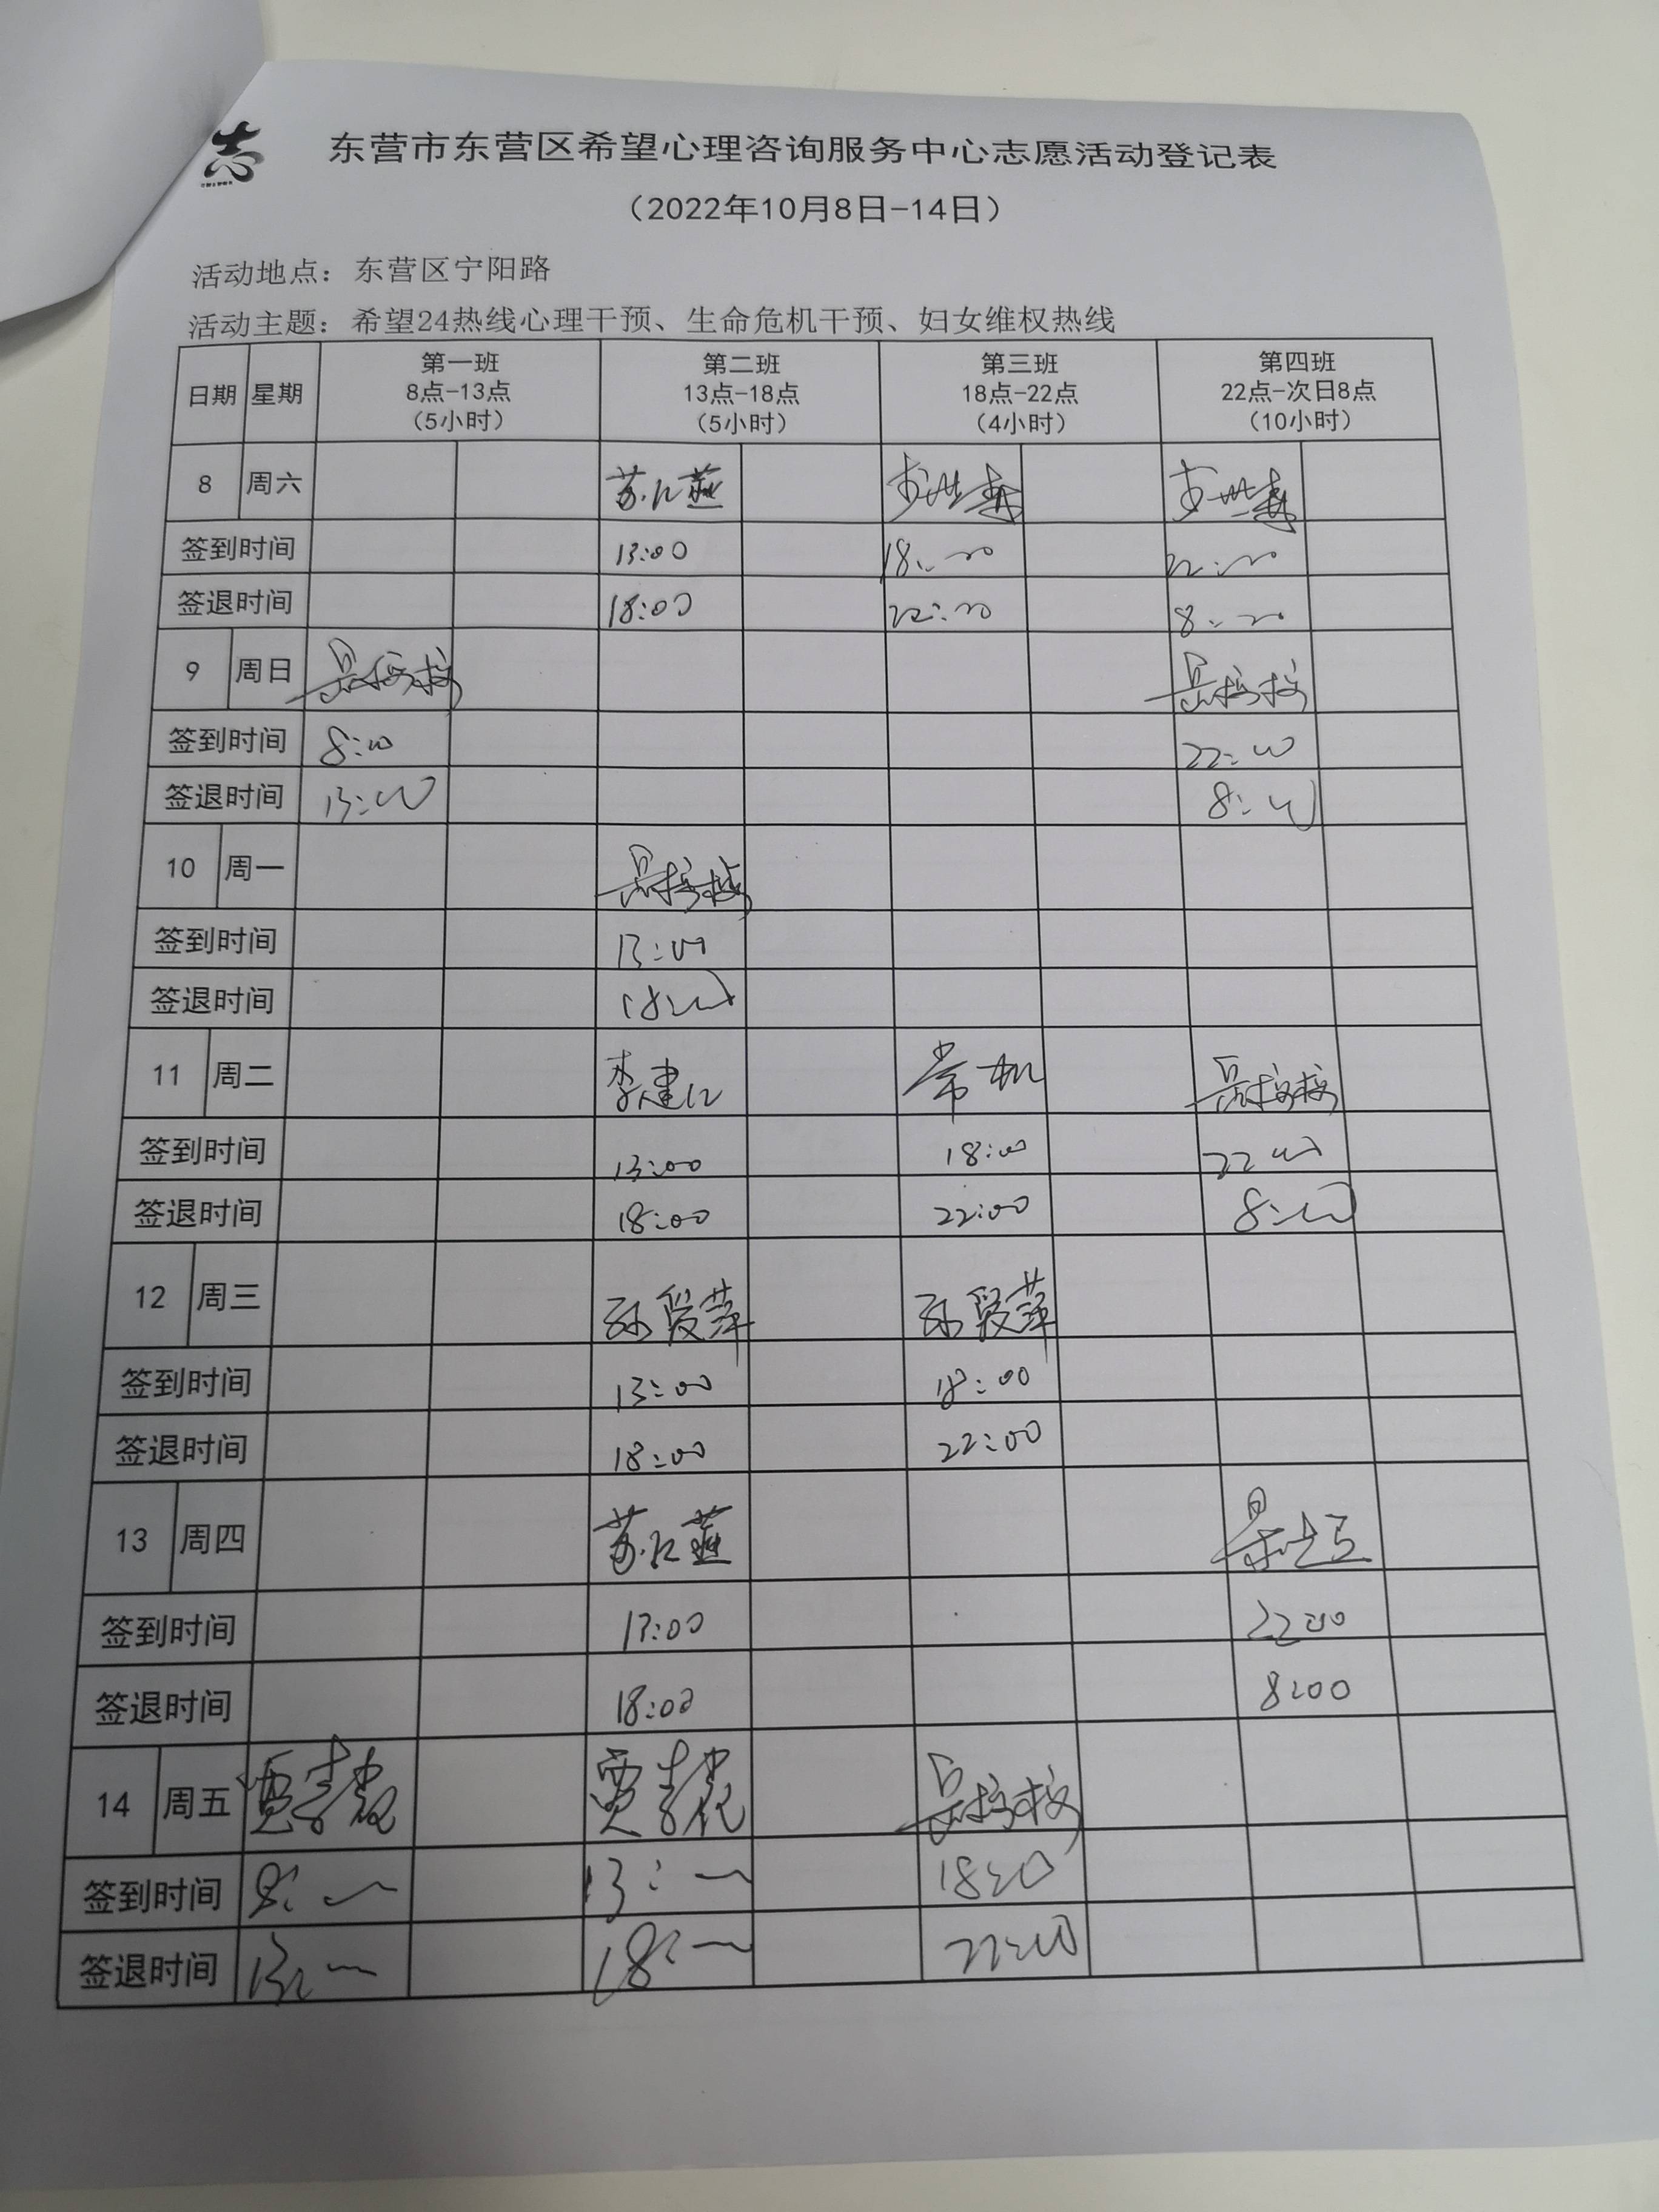 志
东营市东营区希望心理咨询服务中心志愿活动登记表
（2022年10月8日-14日）
活动地点：东营区宁阳路
活动主题：希望24热线心理干预、生命危机干预、妇女维权热线
日期 星期 第一班 8点-13点 （5小时） 第二班 13点-18点 （5小时） 第三班 18点-22点 （4小时） 第四班 22点-次日8点 （10小时）
8 周六
签到时间 13:00 18:00 22:00
签退时间 18:00 22:00 8:00
9 周日
签到时间 8:00 22:00
签退时间 13:00 8:00
10 周一
签到时间 13:00
签退时间 18:00
11 周二 李建
签到时间 13:00 18:00 22:00
签退时间 18:00 22:00 8:00
12 周三
签到时间 13:00 18:00
签退时间 18:00 22:00
13 周四
签到时间 13:00 22:00
签退时间 18:00 8:00
14 周五
签到时间 8: 13: 18:00
签退时间 13: 18: 22:00